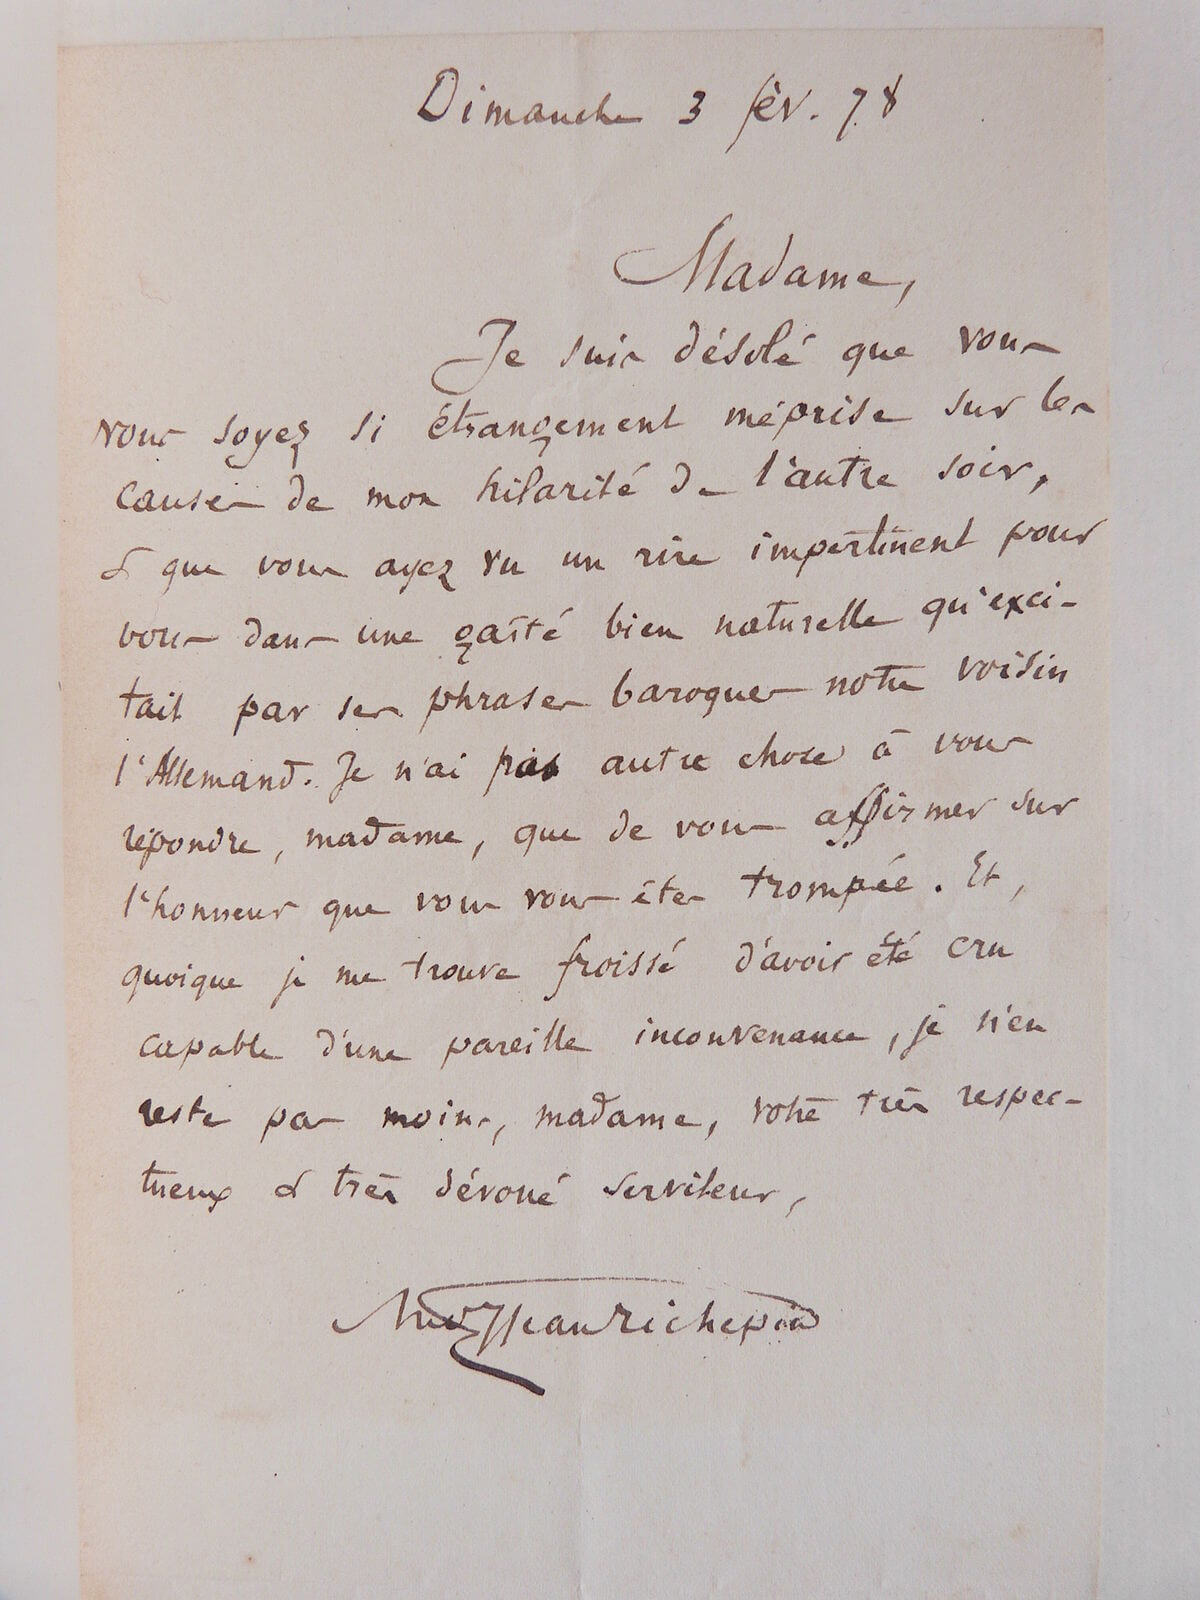 Dimanche 3 fév. 78
Madame,
Je suis désolé que vous
vous soyez si étrangement méprise sur les
causes de mon hilarité de l'autre soir,
& que vous ayez vu un rire impertinent pour
vous dans une gaîté bien naturelle qu'exci-
tait par ses phrases baroques notre voisin
l'Allemand. Je n'ai pas autre chose à vous
répondre, madame, que de vous affirmer sur
l'honneur que vous vous êtes trompée. Et,
quoique je me trouve froissé d'avoir été cru
capable d'une pareille inconvenance, je n'en
reste pas moins, madame, votre très respec-
tueux & très dévoué serviteur,
Jean Richepin